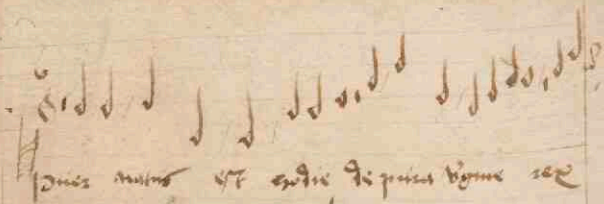 puer natus est hodie de pura v̓gine rex